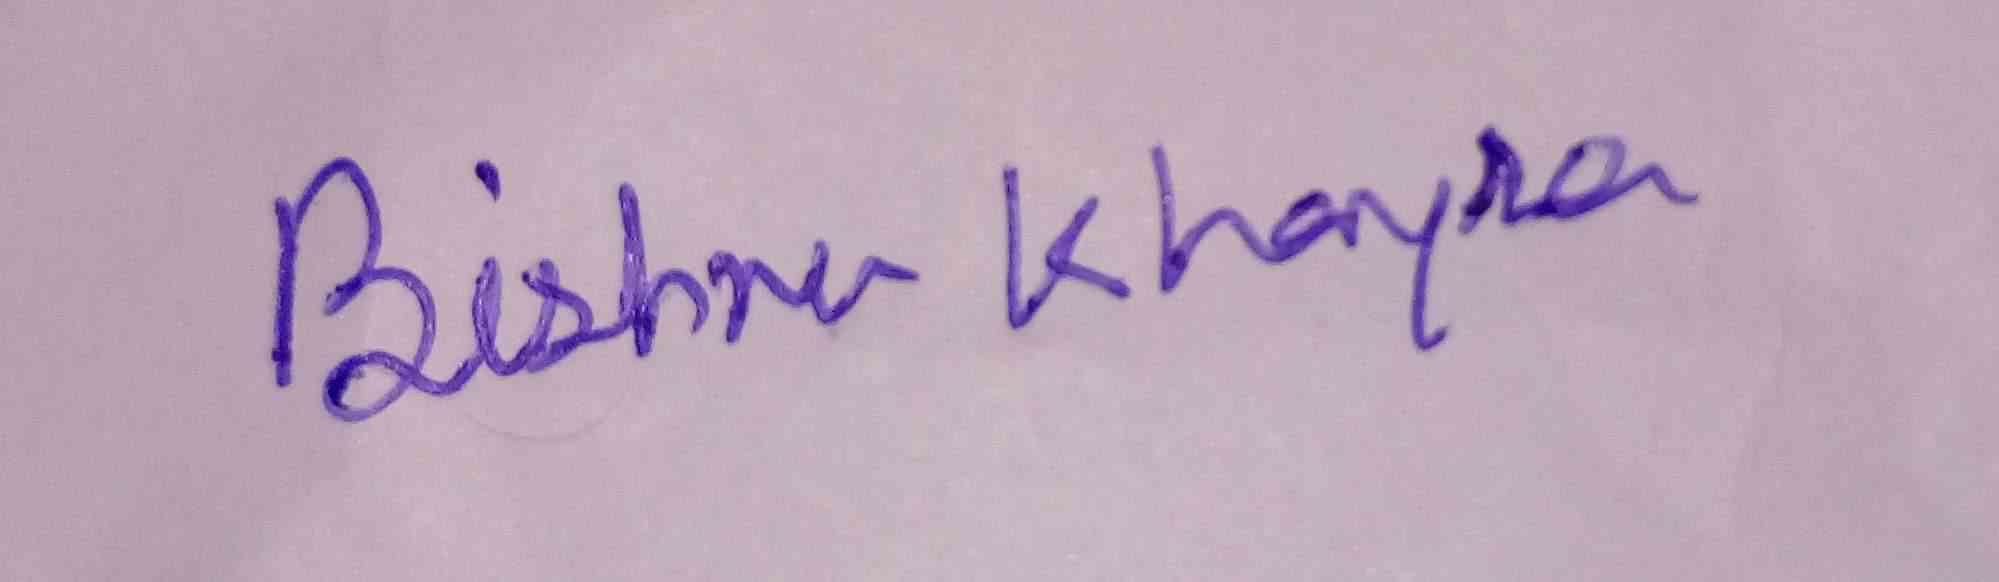 Bishnu Khayra